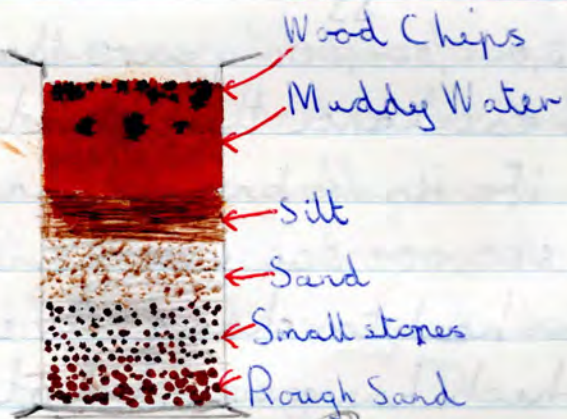 Wood Chips
Muddy Water
Silt
Sand
Small stones
Rough Sand